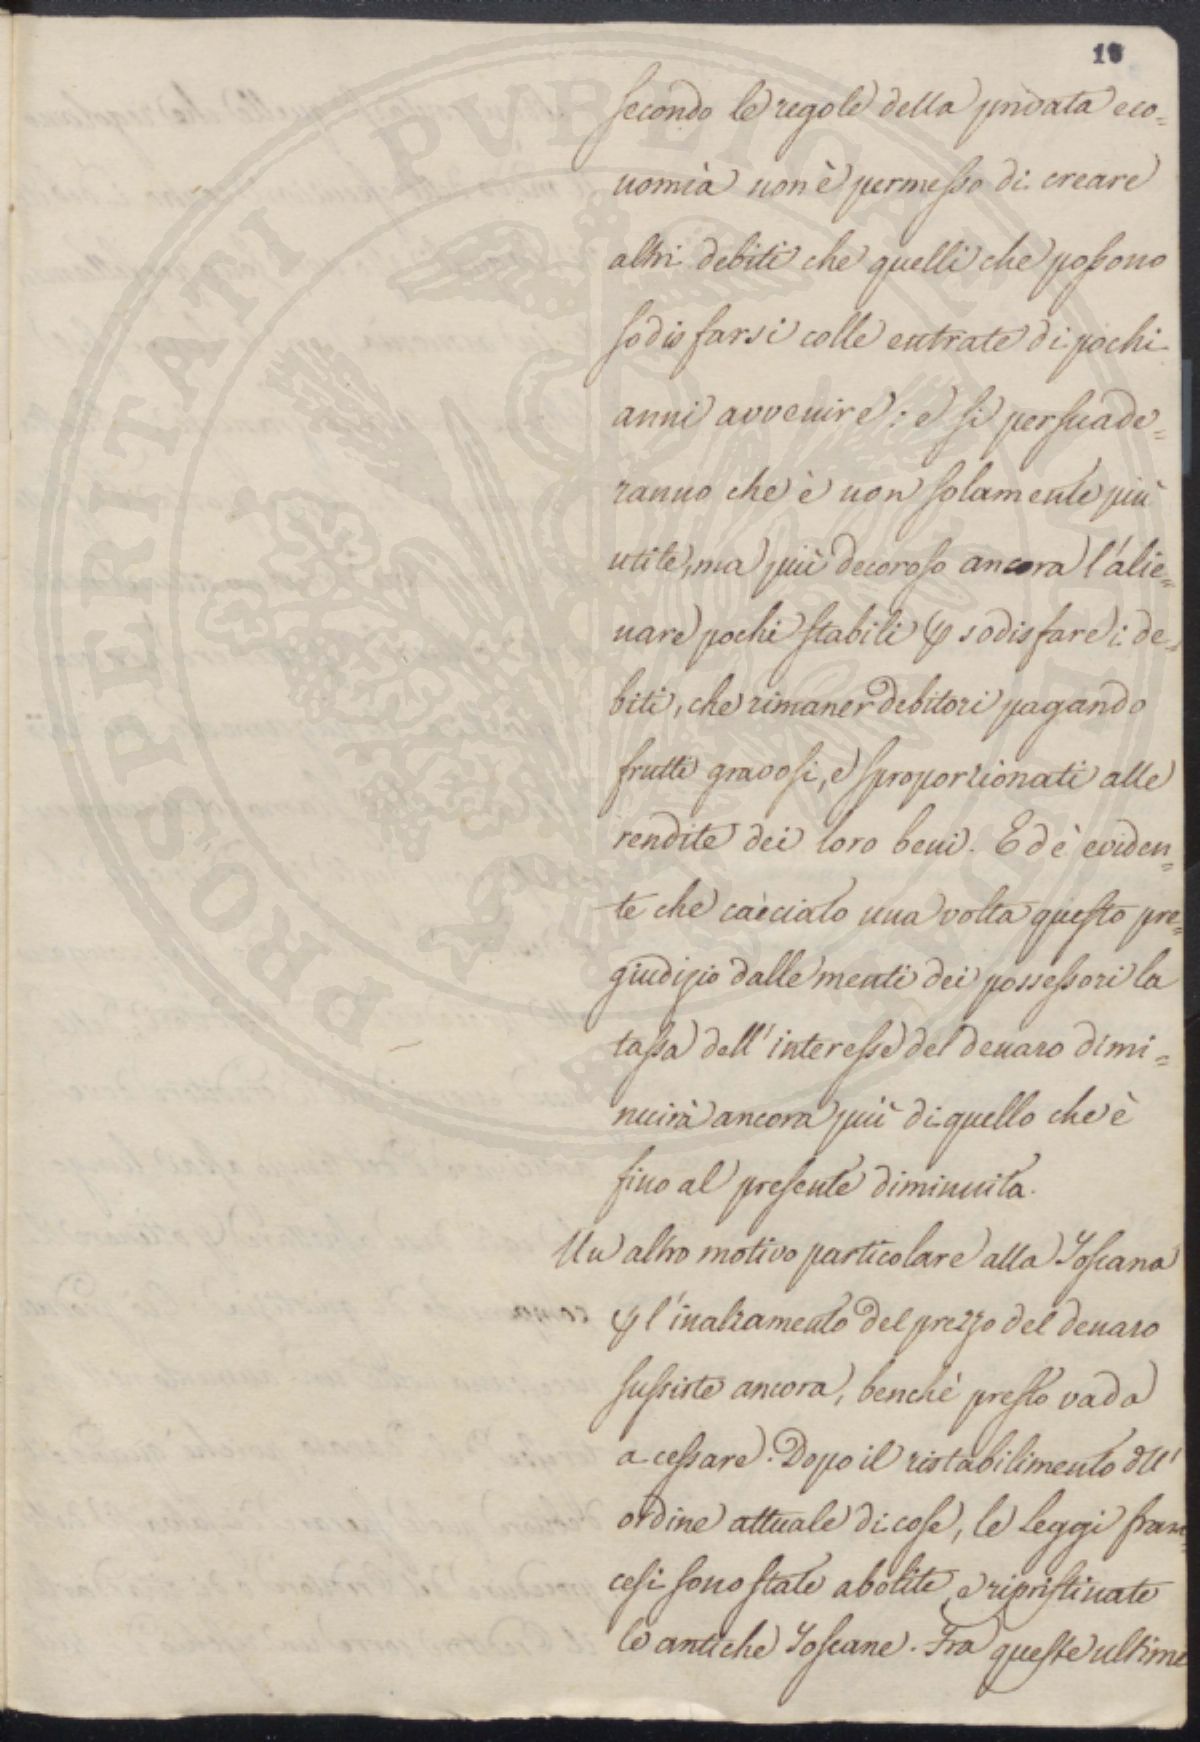 PROSPERITATI PUBLICAE AUGENDAE
secondo le regole della privata eco=
nomia non è permesso di creare
altri debiti che quelli che possono
sodisfarsi colle entrate di pochi
anni avvenire: e si persuade=
ranno che è non solamente più
utile, ma più decoroso ancora l'alie=
nare pochi stabili per sodisfare i de=
biti, che rimaner debitori pagando
frutti gravosi, e sproporzionati alle
rendite dei loro beni. Ed è eviden=
te che cacciato una volta questo pre=
giudizio dalle menti dei possessori la
tassa dell'interesse del denaro dimi=
nuirà ancora più di quello che è
fino al presente diminuita.
Un altro motivo particolare alla Toscana
per l'inalzamento del prezzo del denaro
sussiste ancora, benchè presto vada
a cessare. Dopo il ristabilimento dell'
ordine attuale di cose, le Leggi fran=
cesi sono state abolite, e ripristinate
le antiche Toscane. Fra queste ultime